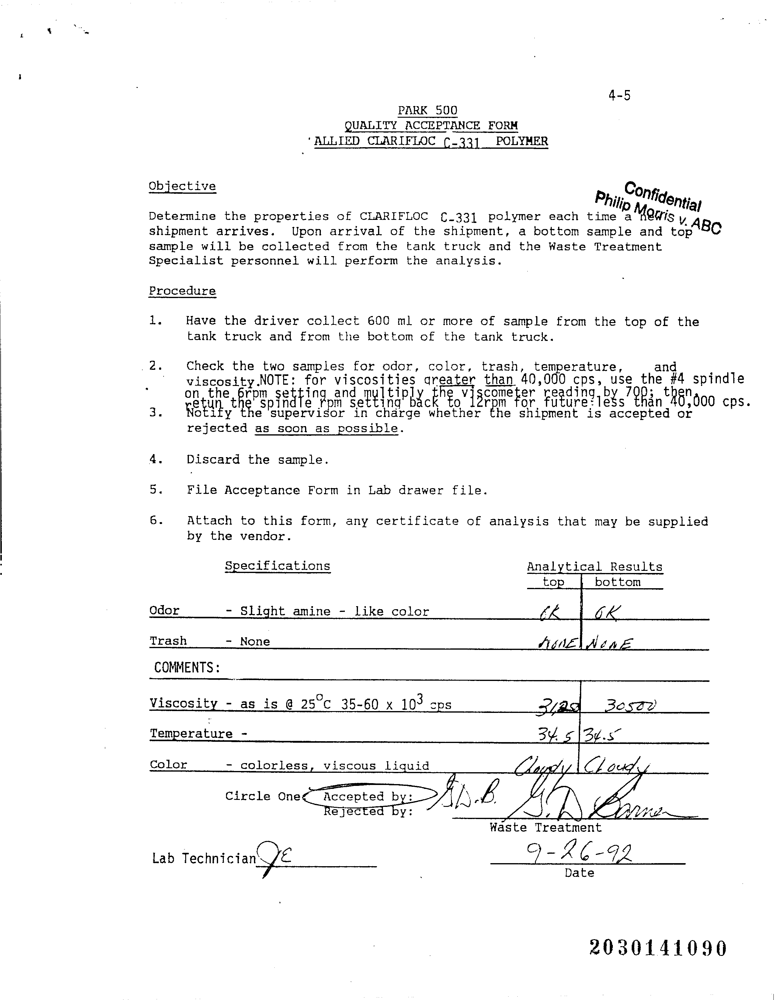 4-5
PARK 500
QUALITY ACCEPTANCE FORM
ALLIED CLARIFLOC C-331 POLYMER
Objective
Confidential
Philip Morris v. ABC
Determine the properties of CLARIFLOC C-331 polymer each time a new
shipment arrives. Upon arrival of the shipment, a bottom sample and top
sample will be collected from the tank truck and the Waste Treatment
Specialist personnel will perform the analysis.
Procedure
1. Have the driver collect 600 ml or more of sample from the top of the
tank truck and from the bottom of the tank truck.
2. Check the two samples for odor, color, trash, temperature, and
viscosity.NOTE: for viscosities greater than 40,000 cps, use the #4 spindle
on the 6rpm setting and multiply the viscometer reading by 700; then,
retun the spindle rpm setting back to 12rpm for future less than 40,000 cps.
3. Notify the supervisor in charge whether the shipment is accepted or
rejected as soon as possible.
4. Discard the sample.
5. File Acceptance Form in Lab drawer file.
6. Attach to this form, any certificate of analysis that may be supplied
by the vendor.
Specifications Analytical Results
top bottom
Odor - Slight amine - like color OK OK
Trash - None NONE NONE
COMMENTS:
Viscosity - as is @ 25°C 35-60 x 10³ cps 30500
Temperature - 34.5 34.5
Color - colorless, viscous liquid Cloudy Cloudy
Circle One: Accepted by: G.D.B. G.D. Barner
Rejected by:
Waste Treatment
Lab Technician JE 9-26-92
Date
2030141090